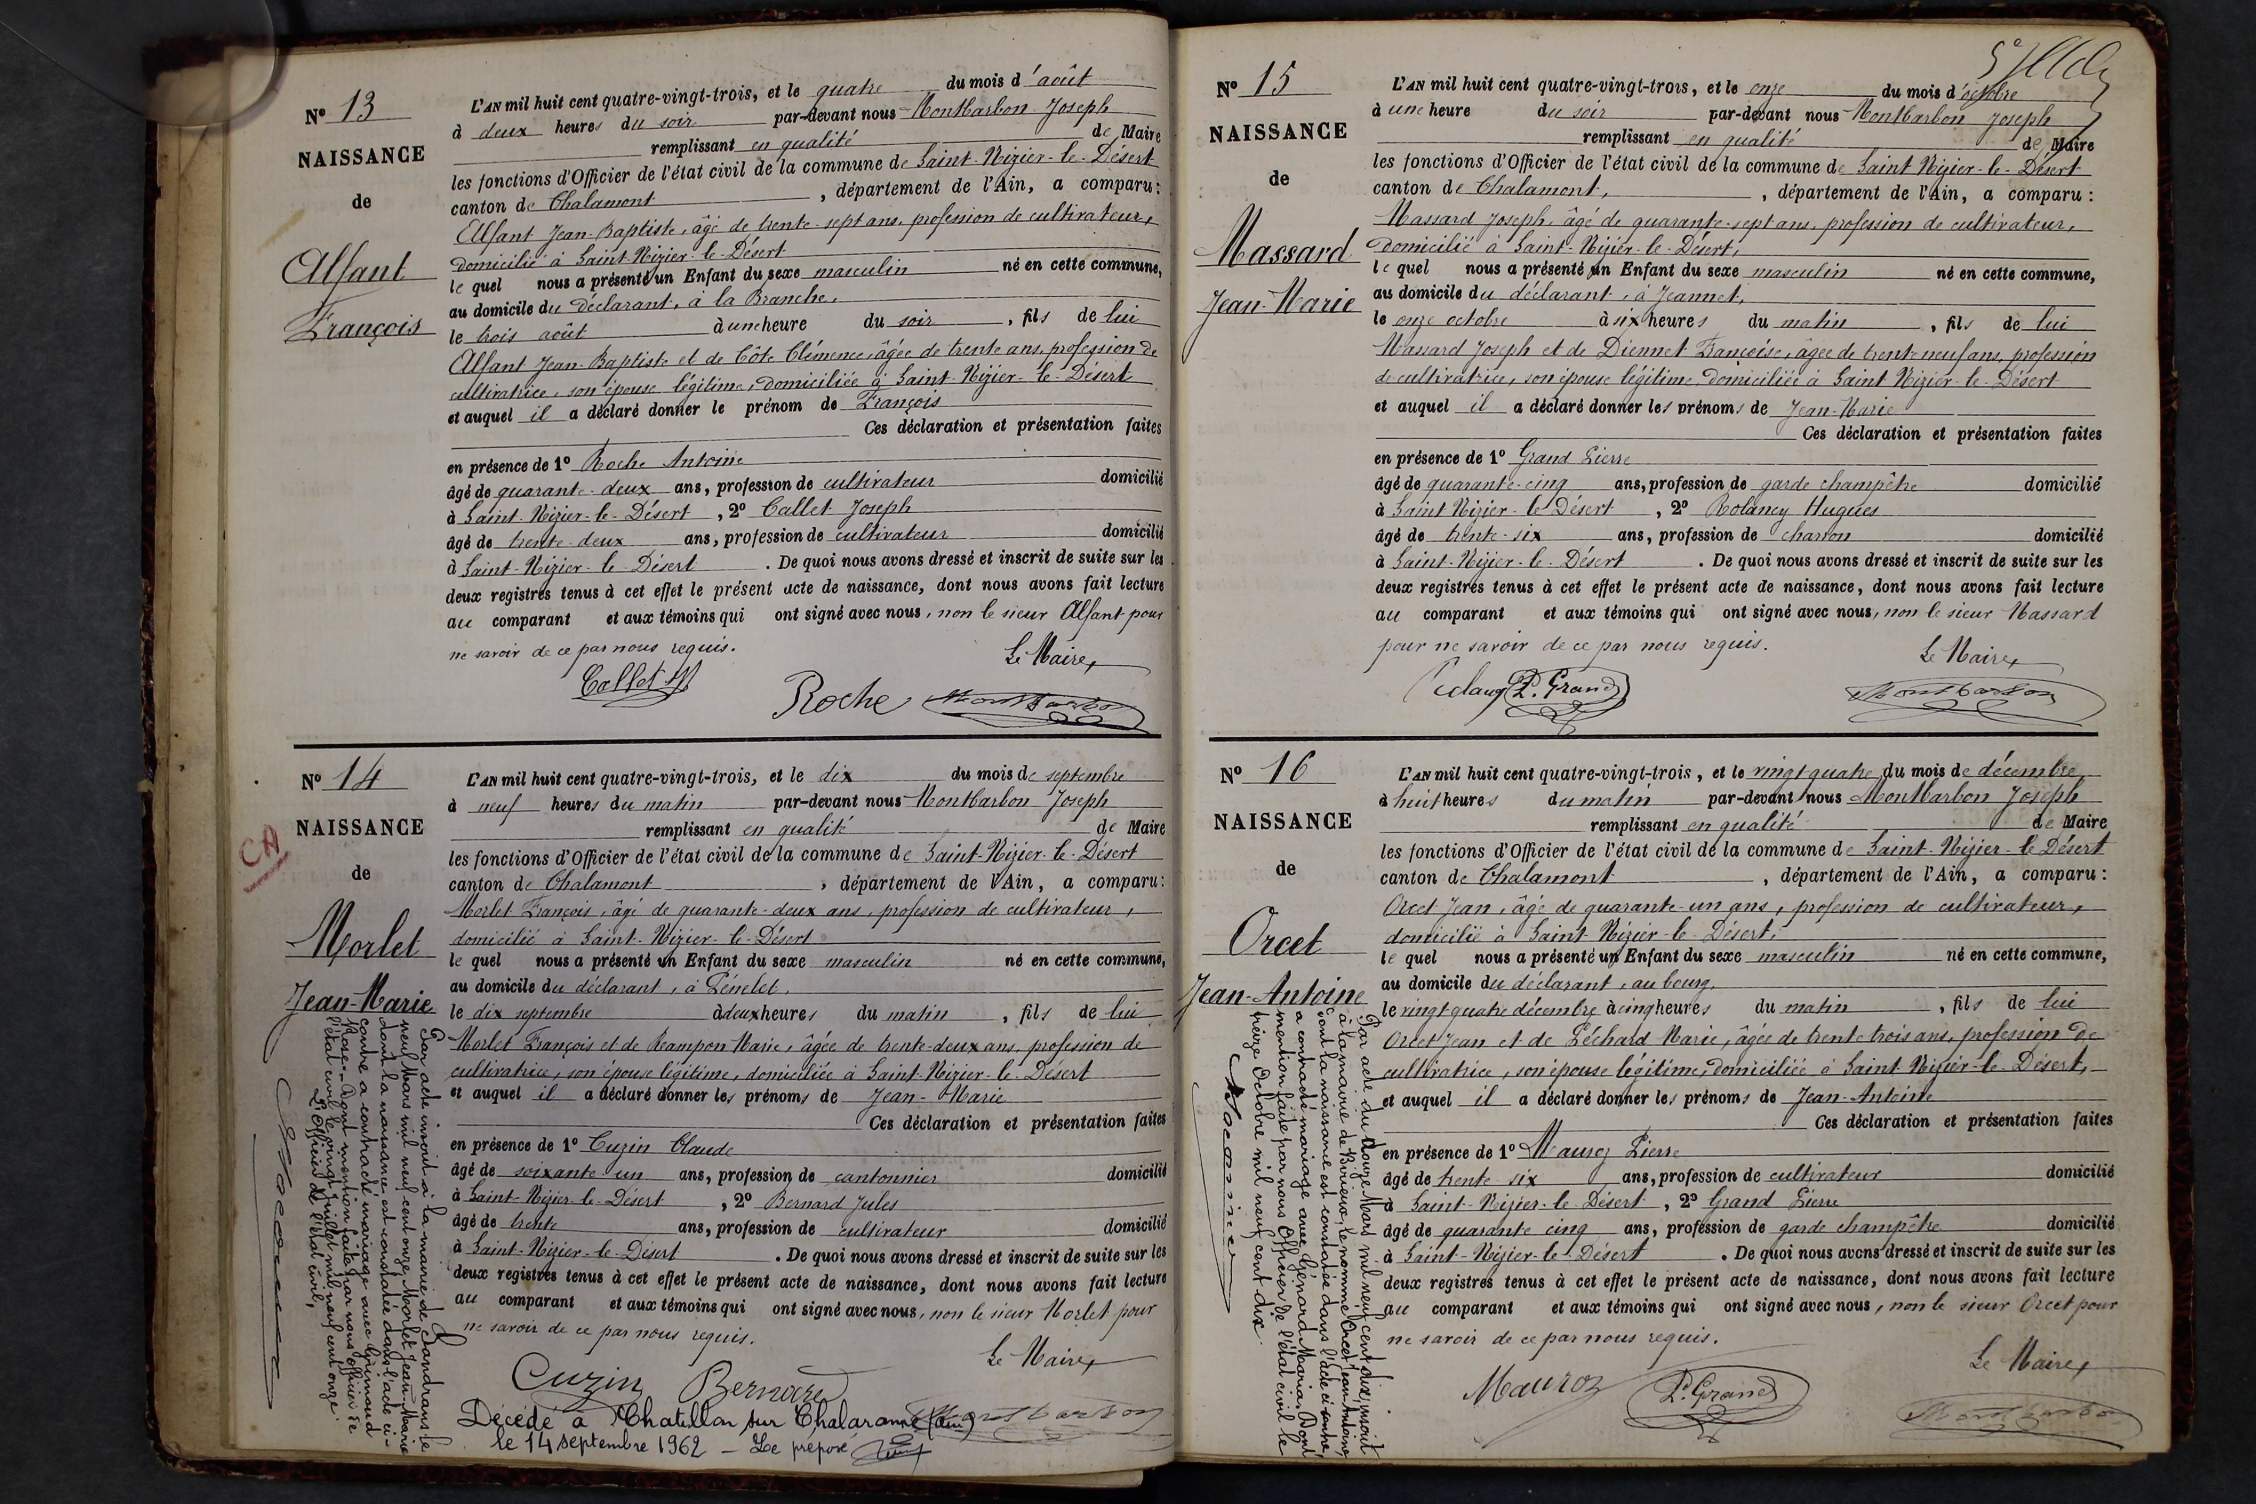 Nº 13
NAISSANCE
de
Alfant
François
L'AN mil huit cent quatre-vingt-trois, et le quatre du mois d'août
à deux heures du soir par-devant nous Montbarbon Joseph
remplissant en qualité de Maire
les fonctions d'Officier de l'état civil de la commune de Saint-Nizier-le-Désert
canton de Chalamont, département de l'Ain, a comparu:
Alfant Jean-Baptiste, âgé de trente-sept ans, profession de cultivateur,
domicilié à Saint-Nizier-le-Désert
lequel nous a présenté un Enfant du sexe masculin né en cette commune,
au domicile du déclarant, à la Branche,
le trois août à une heure du soir, fils de lui
Alfant Jean-Baptiste et de Côte Clémence, âgée de trente ans, profession de
cultivatrice, son épouse légitime, domiciliée à Saint-Nizier-le-Désert
et auquel il a déclaré donner le prénom de François
Ces déclaration et présentation faites
en présence de 1º Roche Antoine
âgé de quarante-deux ans, profession de cultivateur domicilié
à Saint-Nizier-le-Désert, 2º Callet Joseph
âgé de trente-deux ans, profession de cultivateur domicilié
à Saint-Nizier-le-Désert. De quoi nous avons dressé et inscrit de suite sur les
deux registres tenus à cet effet le présent acte de naissance, dont nous avons fait lecture
au comparant et aux témoins qui ont signé avec nous, non le sieur Alfant pour
ne savoir de ce par nous requis.
Le Maire,
Callet
Roche
Montbarbon
Nº 14
NAISSANCE
de
CA
Morlet
Jean-Marie
L'AN mil huit cent quatre-vingt-trois, et le dix du mois de septembre
à neuf heures du matin par-devant nous Montbarbon Joseph
remplissant en qualité de Maire
les fonctions d'Officier de l'état civil de la commune de Saint-Nizier-le-Désert
canton de Chalamont, département de l'Ain, a comparu:
Morlet François, âgé de quarante-deux ans, profession de cultivateur,
domicilié à Saint-Nizier-le-Désert
lequel nous a présenté un Enfant du sexe masculin né en cette commune,
au domicile du déclarant, à Pénelet,
le dix septembre à deux heures du matin, fils de lui
Morlet François et de Rampon Marie, âgée de trente-deux ans, profession de
cultivatrice, son épouse légitime, domiciliée à Saint-Nizier-le-Désert
et auquel il a déclaré donner les prénoms de Jean-Marie
Ces déclaration et présentation faites
en présence de 1º Cuzin Claude
âgé de soixante un ans, profession de cantonnier domicilié
à Saint-Nizier-le-Désert, 2º Bernard Jules
âgé de trente ans, profession de cultivateur domicilié
à Saint-Nizier-le-Désert. De quoi nous avons dressé et inscrit de suite sur les
deux registres tenus à cet effet le présent acte de naissance, dont nous avons fait lecture
au comparant et aux témoins qui ont signé avec nous, non le sieur Morlet pour
ne savoir de ce par nous requis.
Le Maire,
Cuzin Bernard
Montbarbon
Décédé à Chatillon sur Chalaronne (Ain)
le 14 septembre 1962 - Le préposé
Par acte inscrit à la mairie de Sandrans le
neuf Mars mil neuf cent onze, Morlet Jean-Marie
dont la naissance est constatée dans l'acte ci-
contre a contracté mariage avec
Rose. - Dont mention faite par nous officier de
l'état civil le vingt Juillet mil neuf cent onze.
L'Officier de l'état civil,
Nº 15
NAISSANCE
de
Massard
Jean-Marie
L'AN mil huit cent quatre-vingt-trois, et le onze du mois d'octobre
à une heure du soir par-devant nous Montbarbon Joseph
remplissant en qualité de Maire
les fonctions d'Officier de l'état civil de la commune de Saint-Nizier-le-Désert
canton de Chalamont, département de l'Ain, a comparu:
Massard Joseph, âgé de quarante-sept ans, profession de cultivateur,
domicilié à Saint-Nizier-le-Désert,
lequel nous a présenté un Enfant du sexe masculin né en cette commune,
au domicile du déclarant, à Jeannet,
le onze octobre à six heures du matin, fils de lui
Massard Joseph et de Diennet Françoise, âgée de trente neuf ans, profession
de cultivatrice, son épouse légitime, domiciliée à Saint Nizier-le-Désert
et auquel il a déclaré donner les prénoms de Jean-Marie
Ces déclaration et présentation faites
en présence de 1º Grand Pierre
âgé de quarante-cinq ans, profession de garde champêtre domicilié
à Saint Nizier-le-Désert, 2º Rolancy Hugues
âgé de trente-six ans, profession de charron domicilié
à Saint-Nizier-le-Désert. De quoi nous avons dressé et inscrit de suite sur les
deux registres tenus à cet effet le présent acte de naissance, dont nous avons fait lecture
au comparant et aux témoins qui ont signé avec nous, non le sieur Massard
pour ne savoir de ce par nous requis.
Le Maire,
P. Grand
Montbarbon
Nº 16
NAISSANCE
de
Orcet
Jean-Antoine
L'AN mil huit cent quatre-vingt-trois, et le vingt quatre du mois de décembre
à huit heures du matin par-devant nous Montbarbon Joseph
remplissant en qualité de Maire
les fonctions d'Officier de l'état civil de la commune de Saint-Nizier-le Désert
canton de Chalamont, département de l'Ain, a comparu:
Orcet Jean, âgé de quarante-un ans, profession de cultivateur,
domicilié à Saint Nizier-le-Désert,
lequel nous a présenté un Enfant du sexe masculin né en cette commune,
au domicile du déclarant, au bourg,
le vingt quatre décembre à cinq heures du matin, fils de lui
Orcet Jean et de Léchard Marie, âgée de trente trois ans, profession de
cultivatrice, son épouse légitime, domiciliée à Saint Nizier-le-Désert,
et auquel il a déclaré donner les prénoms de Jean-Antoine
Ces déclaration et présentation faites
en présence de 1º Mauroz Pierre
âgé de trente-six ans, profession de cultivateur domicilié
à Saint-Nizier-le-Désert, 2º Grand Pierre
âgé de quarante cinq ans, profession de garde champêtre domicilié
à Saint-Nizier-le-Désert. De quoi nous avons dressé et inscrit de suite sur les
deux registres tenus à cet effet le présent acte de naissance, dont nous avons fait lecture
au comparant et aux témoins qui ont signé avec nous, non le sieur Orcet pour
ne savoir de ce par nous requis.
Le Maire,
Mauroz P. Grand
Montbarbon
Par acte du douze Mars mil neuf cent dix, inscrit
à la mairie de Birieux, le nommé Orcet Jean Antoine,
dont la naissance est constatée dans l'acte ci-contre,
a contracté mariage avec Génard Maria. Dont
mention faite par nous Officier de l'état civil le
treize Octobre mil neuf cent dix.